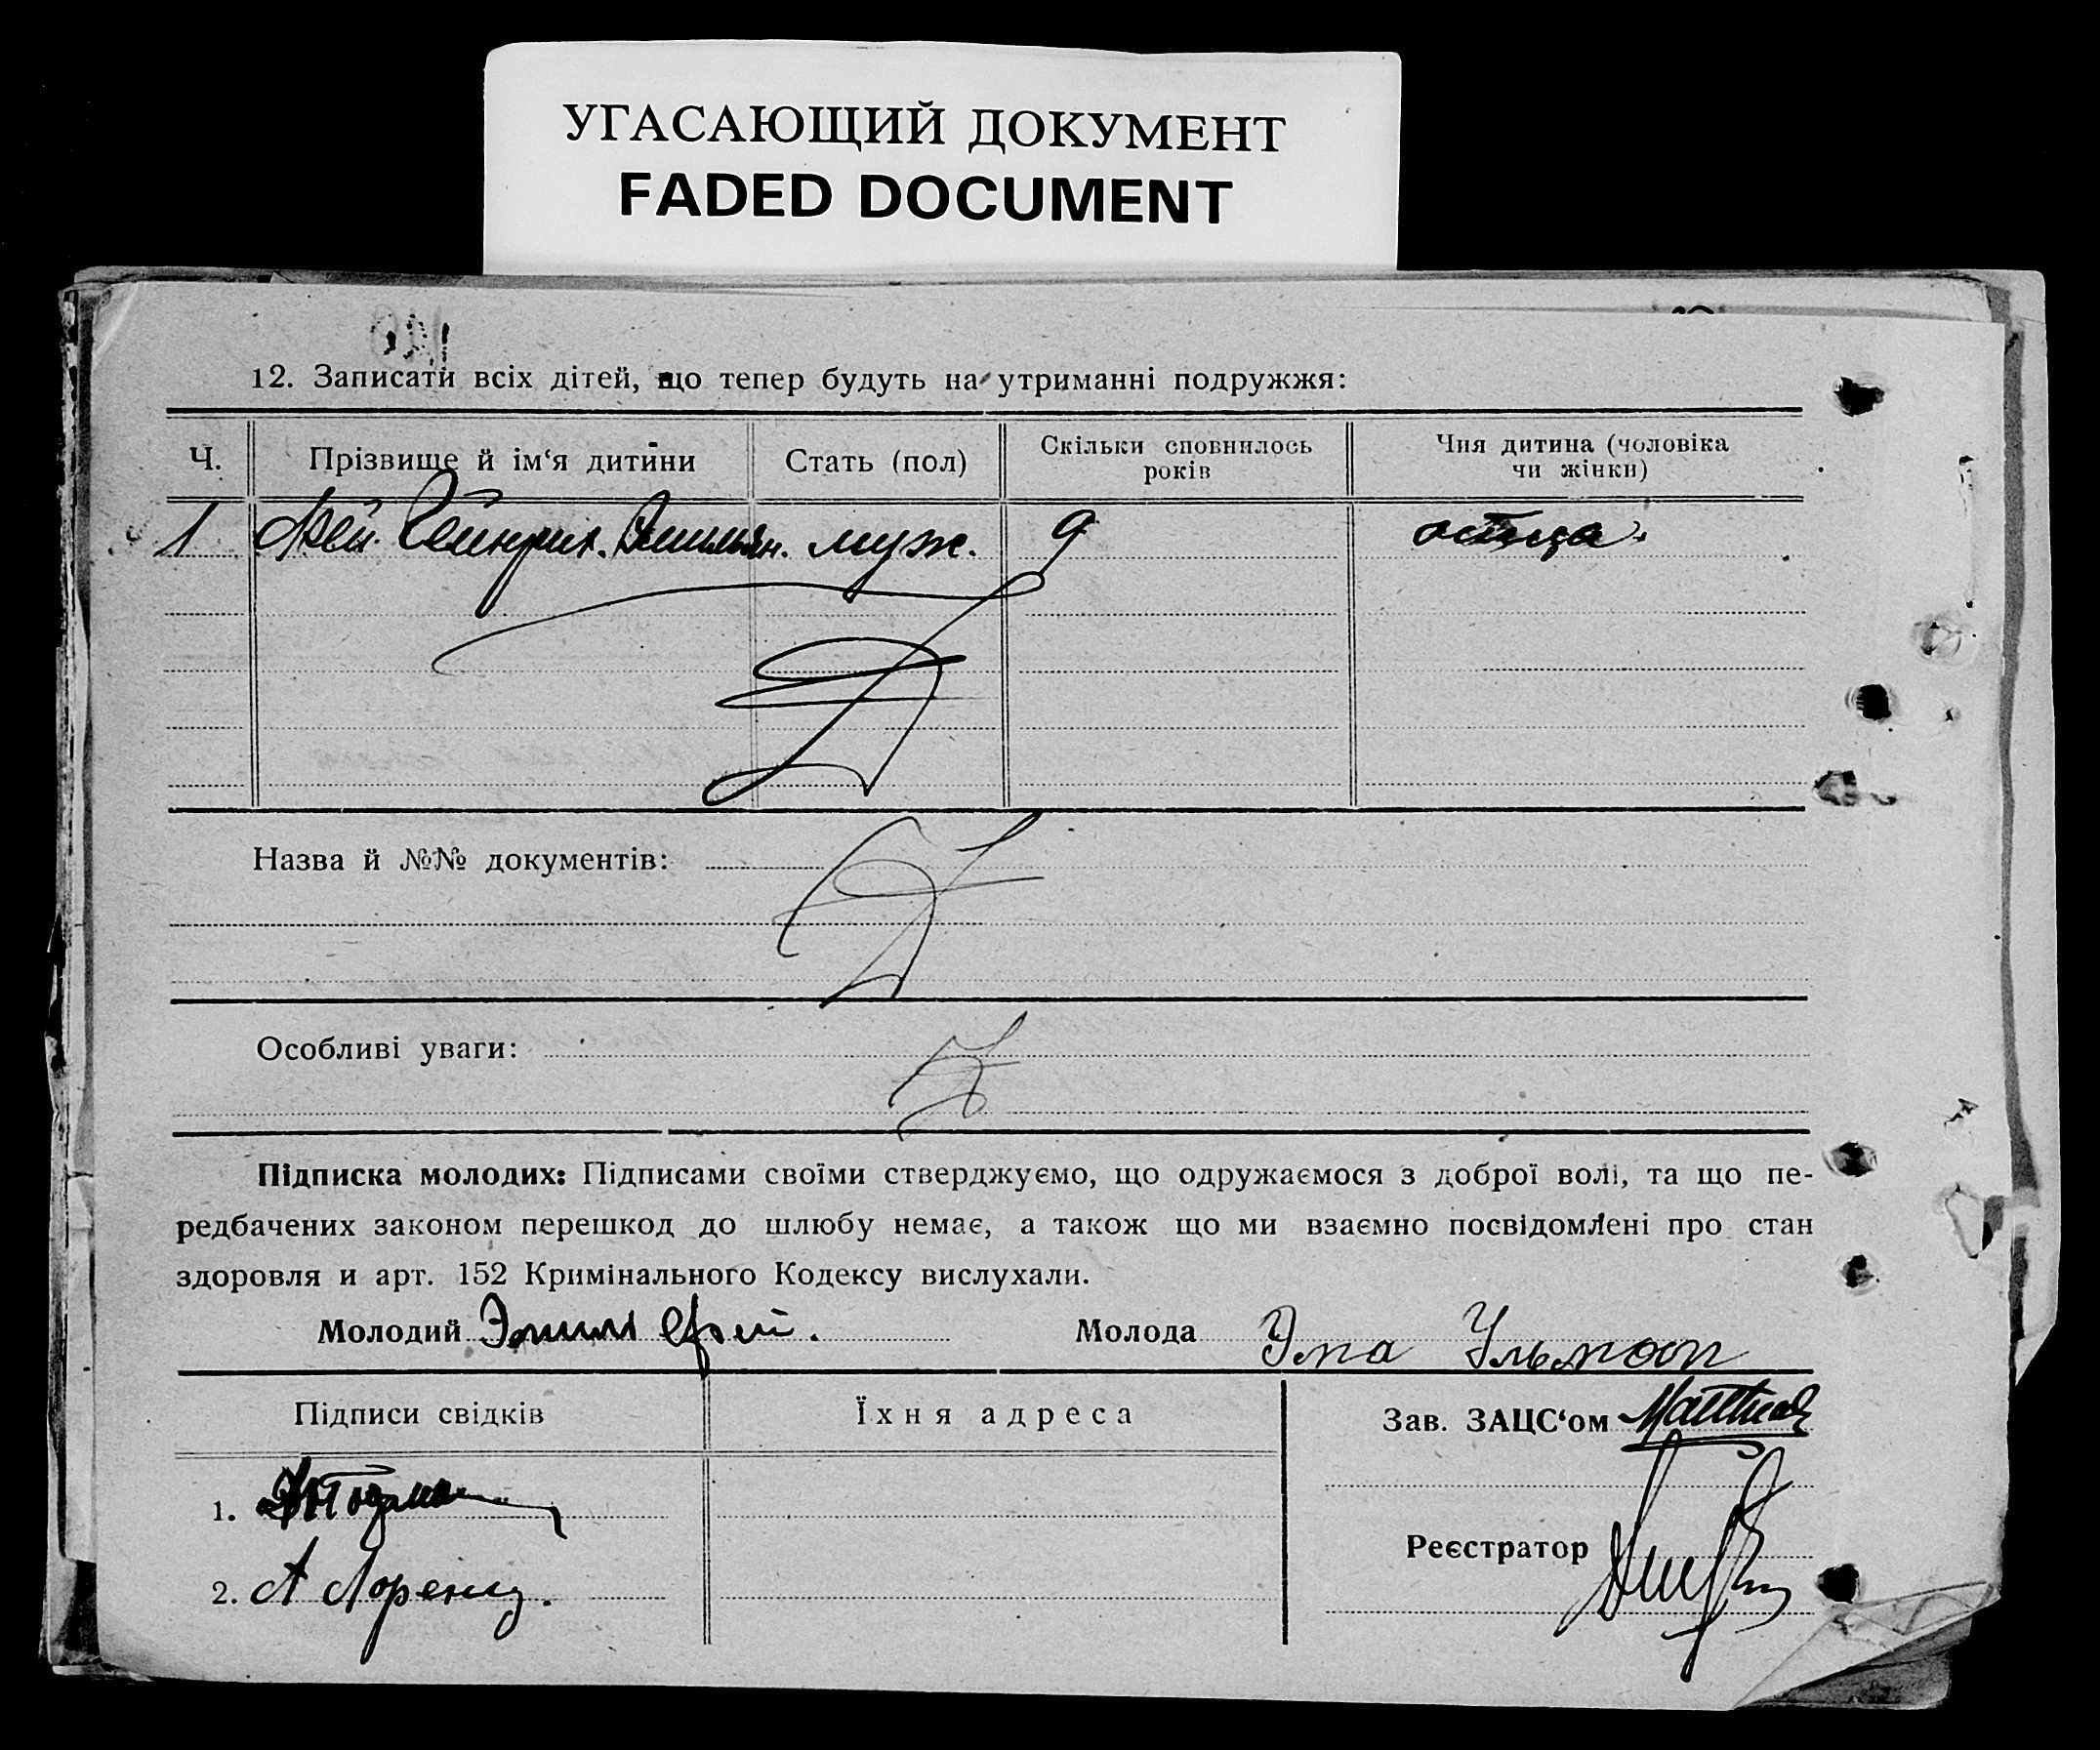 УГАСАЮЩИЙ ДОКУМЕНТ
FADED DOCUMENT
12. Записати всіх дітей, що тепер будуть на утриманні подружжя:
Ч. Прізвище й ім‘я дитини Стать (пол) Скільки сповнилось років Чия дитина (чоловіка чи жінки)
1 Фей Гейнрих. Эмильян. муж. 9 отца.
Назва й №№ документів:
Особливі уваги:
Підписка молодих: Підписами своїми стверджуємо, що одружаємося з доброї волі, та що пе-
редбачених законом перешкод до шлюбу немає, а також що ми взаємно посвідомлені про стан
здоровля и арт. 152 Кримінального Кодексу вислухали.
Молодий Эмиль Фей. Молода Эма Ульман
Підписи свідків Їхня адреса Зав. ЗАЦС‘ом
1.
Реєстратор
2. А Лоренц.